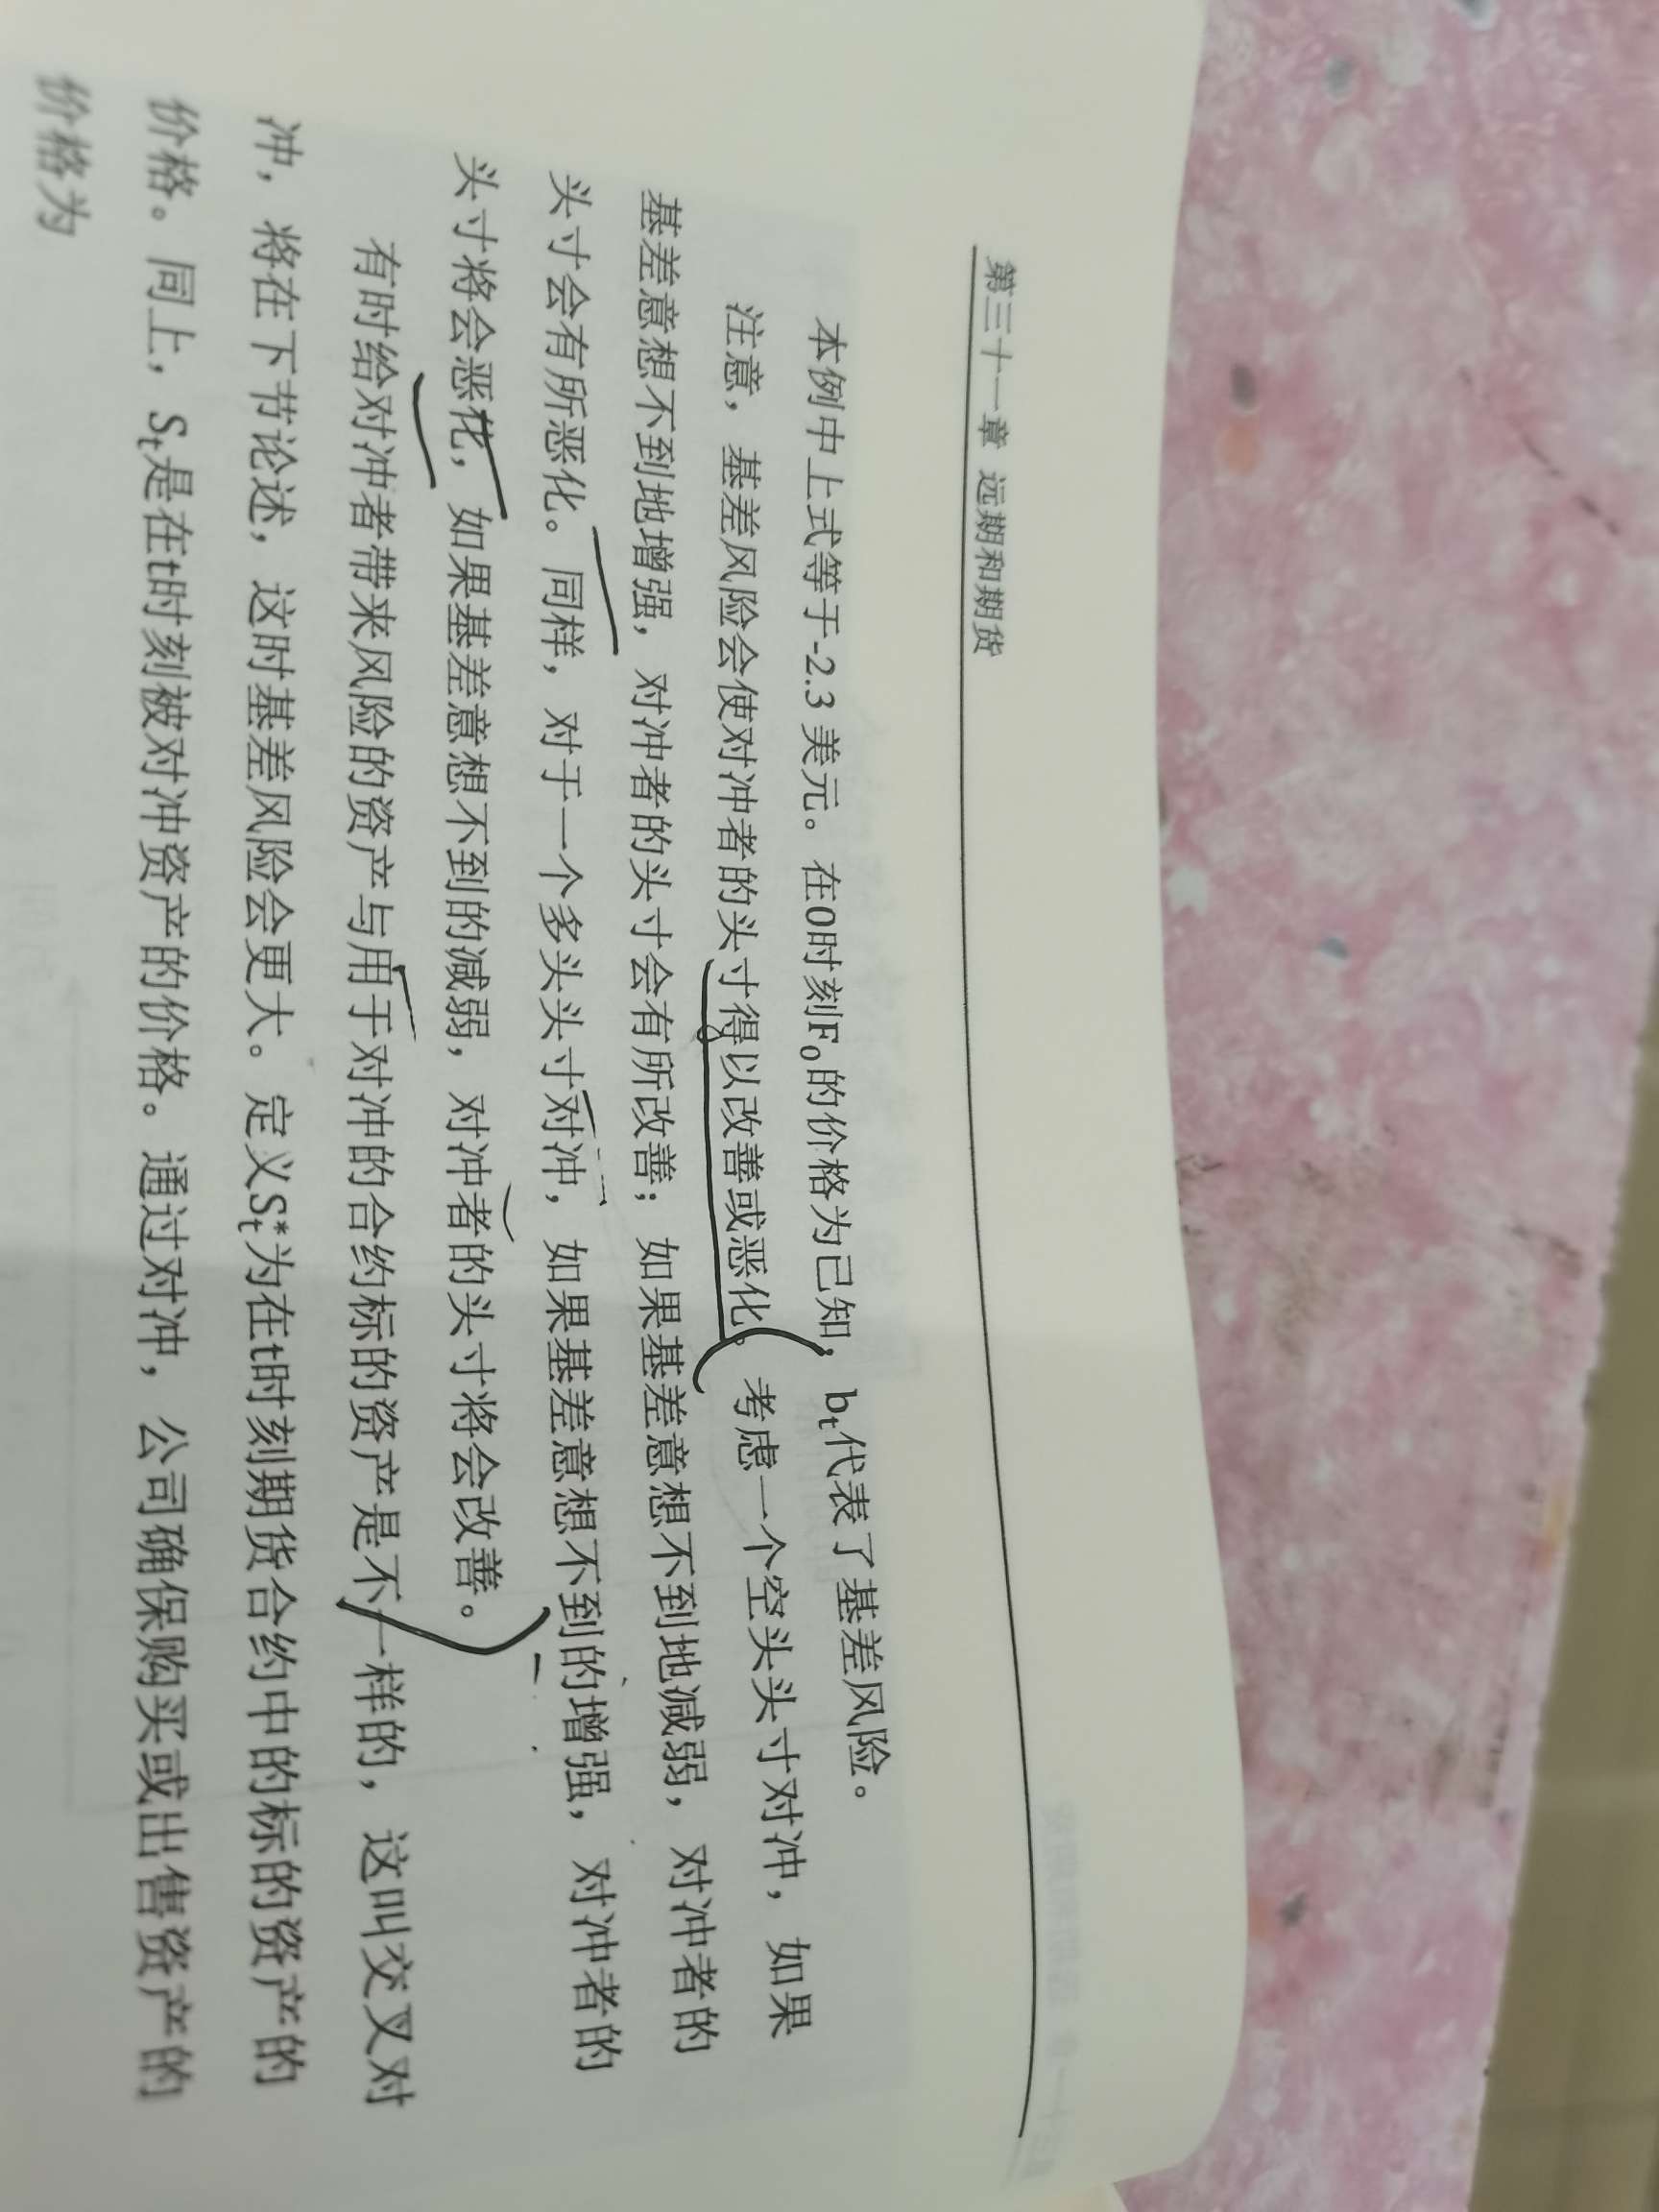 第三十一章 远期和期货
本例中上式等于-2.3 美元。在0时刻F₀的价格为已知，bₜ代表了基差风险。
注意，基差风险会使对冲者的头寸得以改善或恶化。考虑一个空头头寸对冲，如果
基差意想不到地增强，对冲者的头寸会有所改善；如果基差意想不到地减弱，对冲者的
头寸会有所恶化。同样，对于一个多头头寸对冲，如果基差意想不到的增强，对冲者的
头寸将会恶化，如果基差意想不到的减弱，对冲者的头寸将会改善。
有时给对冲者带来风险的资产与用于对冲的合约标的资产是不一样的，这叫交叉对
冲，将在下节论述，这时基差风险会更大。定义Sₜ*为在t时刻期货合约中的标的资产的
价格。同上，Sₜ是在t时刻被对冲资产的价格。通过对冲，公司确保购买或出售资产的
价格为